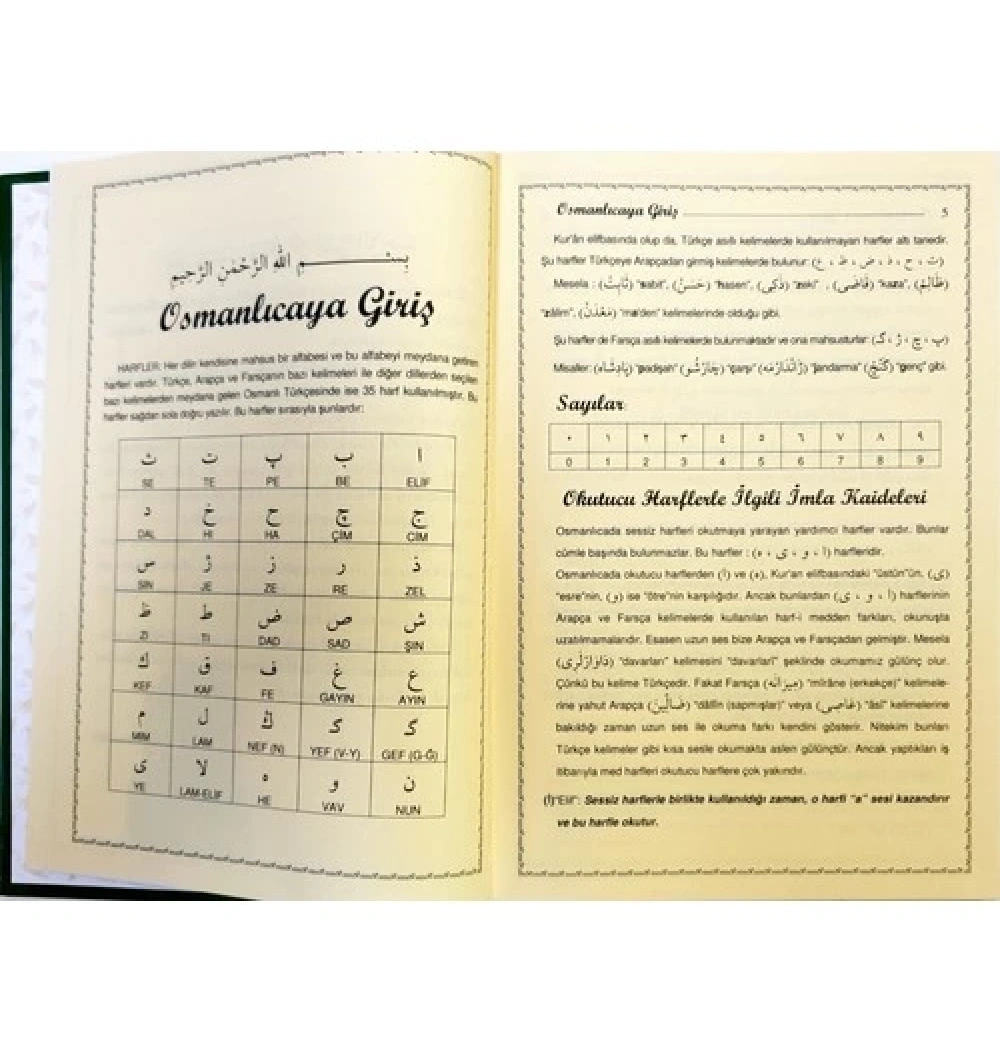 بسم الله الرحمن الرحيم
Osmanlıcaya Giriş
HARFLER: Her dilin kendisine mahsus bir alfabesi ve bu alfabeyi meydana getiren
harfleri vardır. Türkçe, Arapça ve Farsçanın bazı kelimeleri ile diğer dillerden seçilen
bazı kelimelerden meydana gelen Osmanlı Türkçesinde ise 35 harf kullanılmıştır. Bu
harfler sağdan sola doğru yazılır. Bu harfler sırasıyla şunlardır:
ث ت پ ب ا
SE TE PE BE ELİF
د خ ح چ ج
DAL HI HA ÇİM CİM
س ژ ز ر ذ
SİN JE ZE RE ZEL
ظ ط ض ص ش
ZI TI DAD SAD ŞIN
ك ق ف غ ع
KEF KAF FE GAYIN AYIN
م ل ڭ ک ک
MİM LAM NEF (N) YEF (V-Y) GEF (G-Ğ)
ى لا ه و ن
YE LAM-ELİF HE VAV NUN
Osmanlıcaya Giriş 5
Kur'ân elifbasında olup da, Türkçe asıllı kelimelerde kullanılmayan harfler altı tanedir.
Şu harfler Türkçeye Arapçadan girmiş kelimelerde bulunur: (ث ، ح ، ذ ، ض ، ظ ، ع)
Mesela : (ثَابِتْ) "sabit", (حَسَنْ) "hasen", (ذَكِى) "zeki" , (قَاضِى) "kaza", (ظَالِمْ)
"zâlim", (مَعْدَنْ) "ma'den" kelimelerinde olduğu gibi.
Şu harfler de Farsça asıllı kelimelerde bulunmaktadır ve ona mahsusturlar: (پ ، چ ، ژ ، گ)
Misaller: (پَادِشَاه) "padişah" (چَارْشُو) "çarşı" (ژَانْدَارْمَه) "jandarma" (گَنْجْ) "genç" gibi.
Sayılar
٠ ١ ٢ ٣ ٤ ٥ ٦ ٧ ٨ ٩
0 1 2 3 4 5 6 7 8 9
Okutucu Harflerle İlgili İmla Kaideleri
Osmanlıcada sessiz harfleri okutmaya yarayan yardımcı harfler vardır. Bunlar
cümle başında bulunmazlar. Bu harfler : (ا ، و ، ى ، ه) harfleridir.
Osmanlıcada okutucu harflerden (ا) ve (ه), Kur'an elifbasındaki "üstün"ün, (ى)
"esre"nin, (و) ise "ötre"nin karşılığıdır. Ancak bunlardan (ا ، و ، ى) harflerinin
Arapça ve Farsça kelimelerde kullanılan harf-i medden farkları, okunuşta
uzatılmamalarıdır. Esasen uzun ses bize Arapça ve Farsçadan gelmiştir. Mesela
(دَاوَارْلَرِى) "davarları" kelimesini "davarlarî" şeklinde okumamız gülünç olur.
Çünkü bu kelime Türkçedir. Fakat Farsça (مِيرَانَه) "mîrâne (erkekçe)" kelimele-
rine yahut Arapça (ضَالِّينْ) "dâllîn (sapmışlar)" veya (عَاصِى) "âsî" kelimelerine
bakıldığı zaman uzun ses ile okuma farkı kendini gösterir. Nitekim bunları
Türkçe kelimeler gibi kısa sesle okumakta aslen gülünçtür. Ancak yaptıkları iş
itibarıyla med harfleri okutucu harflere çok yakındır.
(ا)"Elif": Sessiz harflerle birlikte kullanıldığı zaman, o harfi "a" sesi kazandırır
ve bu harfle okutur.